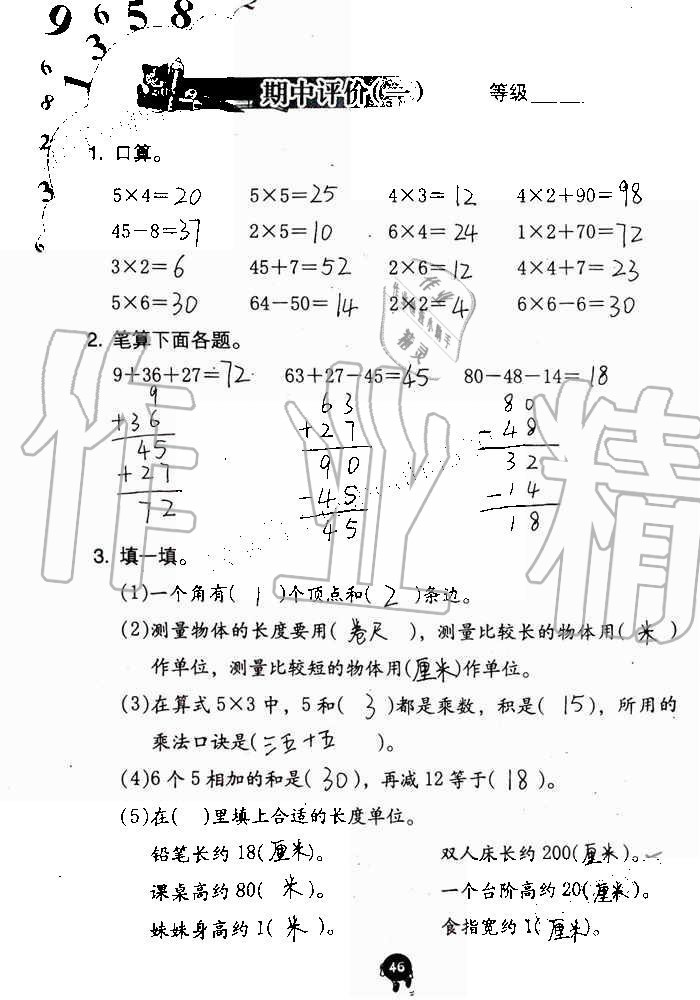 9 6 5 8
1 3
6
8
2
3
6
期中评价(一) 等级
1. 口算。
5×4=20 5×5=25 4×3=12 4×2+90=98
45-8=37 2×5=10 6×4=24 1×2+70=72
3×2=6 45+7=52 2×6=12 4×4+7=23
5×6=30 64-50=14 2×2=4 6×6-6=30
2. 笔算下面各题。
9+36+27=72 63+27-45=45 80-48-14=18
9 63 80
+36 +27 -48
45 90 32
+27 -45 -14
72 45 18
3. 填一填。
(1)一个角有( 1 )个顶点和( 2 )条边。
(2)测量物体的长度要用( 卷尺 ),测量比较长的物体用( 米 )
作单位,测量比较短的物体用(厘米)作单位。
(3)在算式5×3中,5和( 3 )都是乘数,积是( 15 ),所用的
乘法口诀是(三五十五 )。
(4)6个5相加的和是( 30 ),再减12等于( 18 )。
(5)在( )里填上合适的长度单位。
铅笔长约18(厘米)。 双人床长约200(厘米)。
课桌高约80( 米 )。 一个台阶高约20(厘米)。
妹妹身高约1( 米 )。 食指宽约1(厘米)。
46
作业精